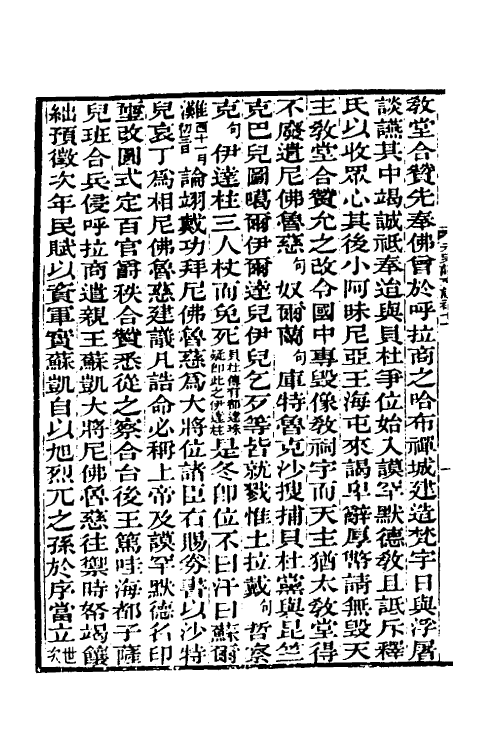 教堂合贊先奉佛曾於呼拉商之哈布禪城建造梵宇日與浮屠
談讌其中竭誠祗奉迨與貝杜爭位始入謨罕默德敎且詆斥釋
氏以收眾心其後小阿昧尼亞王海屯來謁卑辭厚幣請無毀天
主敎堂合贊允之改令國中專毀像敎祠宇而天主猶太敎堂得
不廢遣尼佛魯慈句奴爾蘭句庫特魯克沙搜捕貝杜黨與昆竺
克巴兒圖噶爾伊爾達兒伊兒乞歹等皆就戮惟土拉戴句哲察
克句伊達柱三人杖而免死貝杜傳有都達珠疑即此之伊達柱是冬卽位不曰汗曰蘇爾
灘西十一月初三日論翊戴功拜尼佛魯慈爲大將位諸臣右賜劵書以沙特
兒哀丁爲相尼佛魯慈建議凡誥命必稱上帝及謨罕默德名印
璽改圓式定百官爵秩合贊悉從之察合台後王篤哇海都子薩
兒班合兵侵呼拉商遣親王蘇凱大將尼佛魯慈往禦時帑竭饟
絀預徵次年民賦以資軍實蘇凱自以旭烈兀之孫於序當立世次